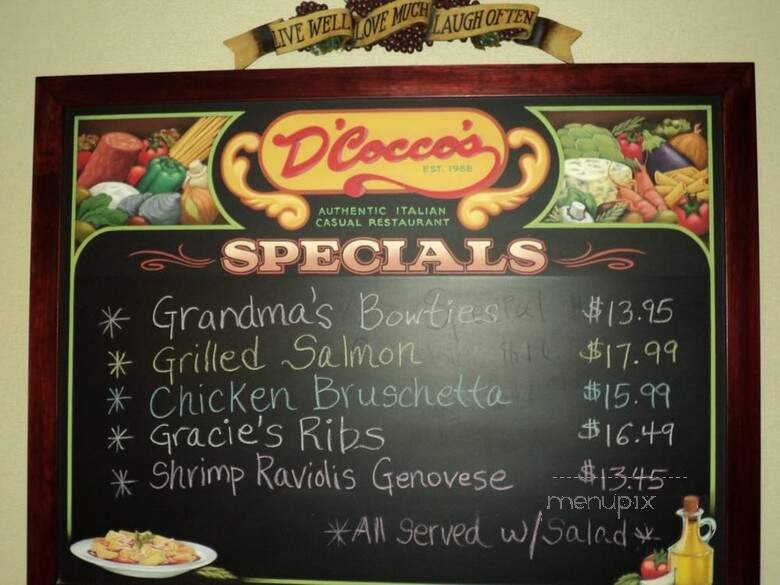 LIVE WELL LOVE MUCH LAUGH OFTEN
D'Cocco's
EST. 1988
AUTHENTIC ITALIAN
CASUAL RESTAURANT
SPECIALS
* Grandma's Bowties $13.95
* Grilled Salmon $17.99
* Chicken Bruschetta $15.99
* Gracie's Ribs $16.49
* Shrimp Raviolis Genovese $13.45
menupix
*All Served w/Salad*